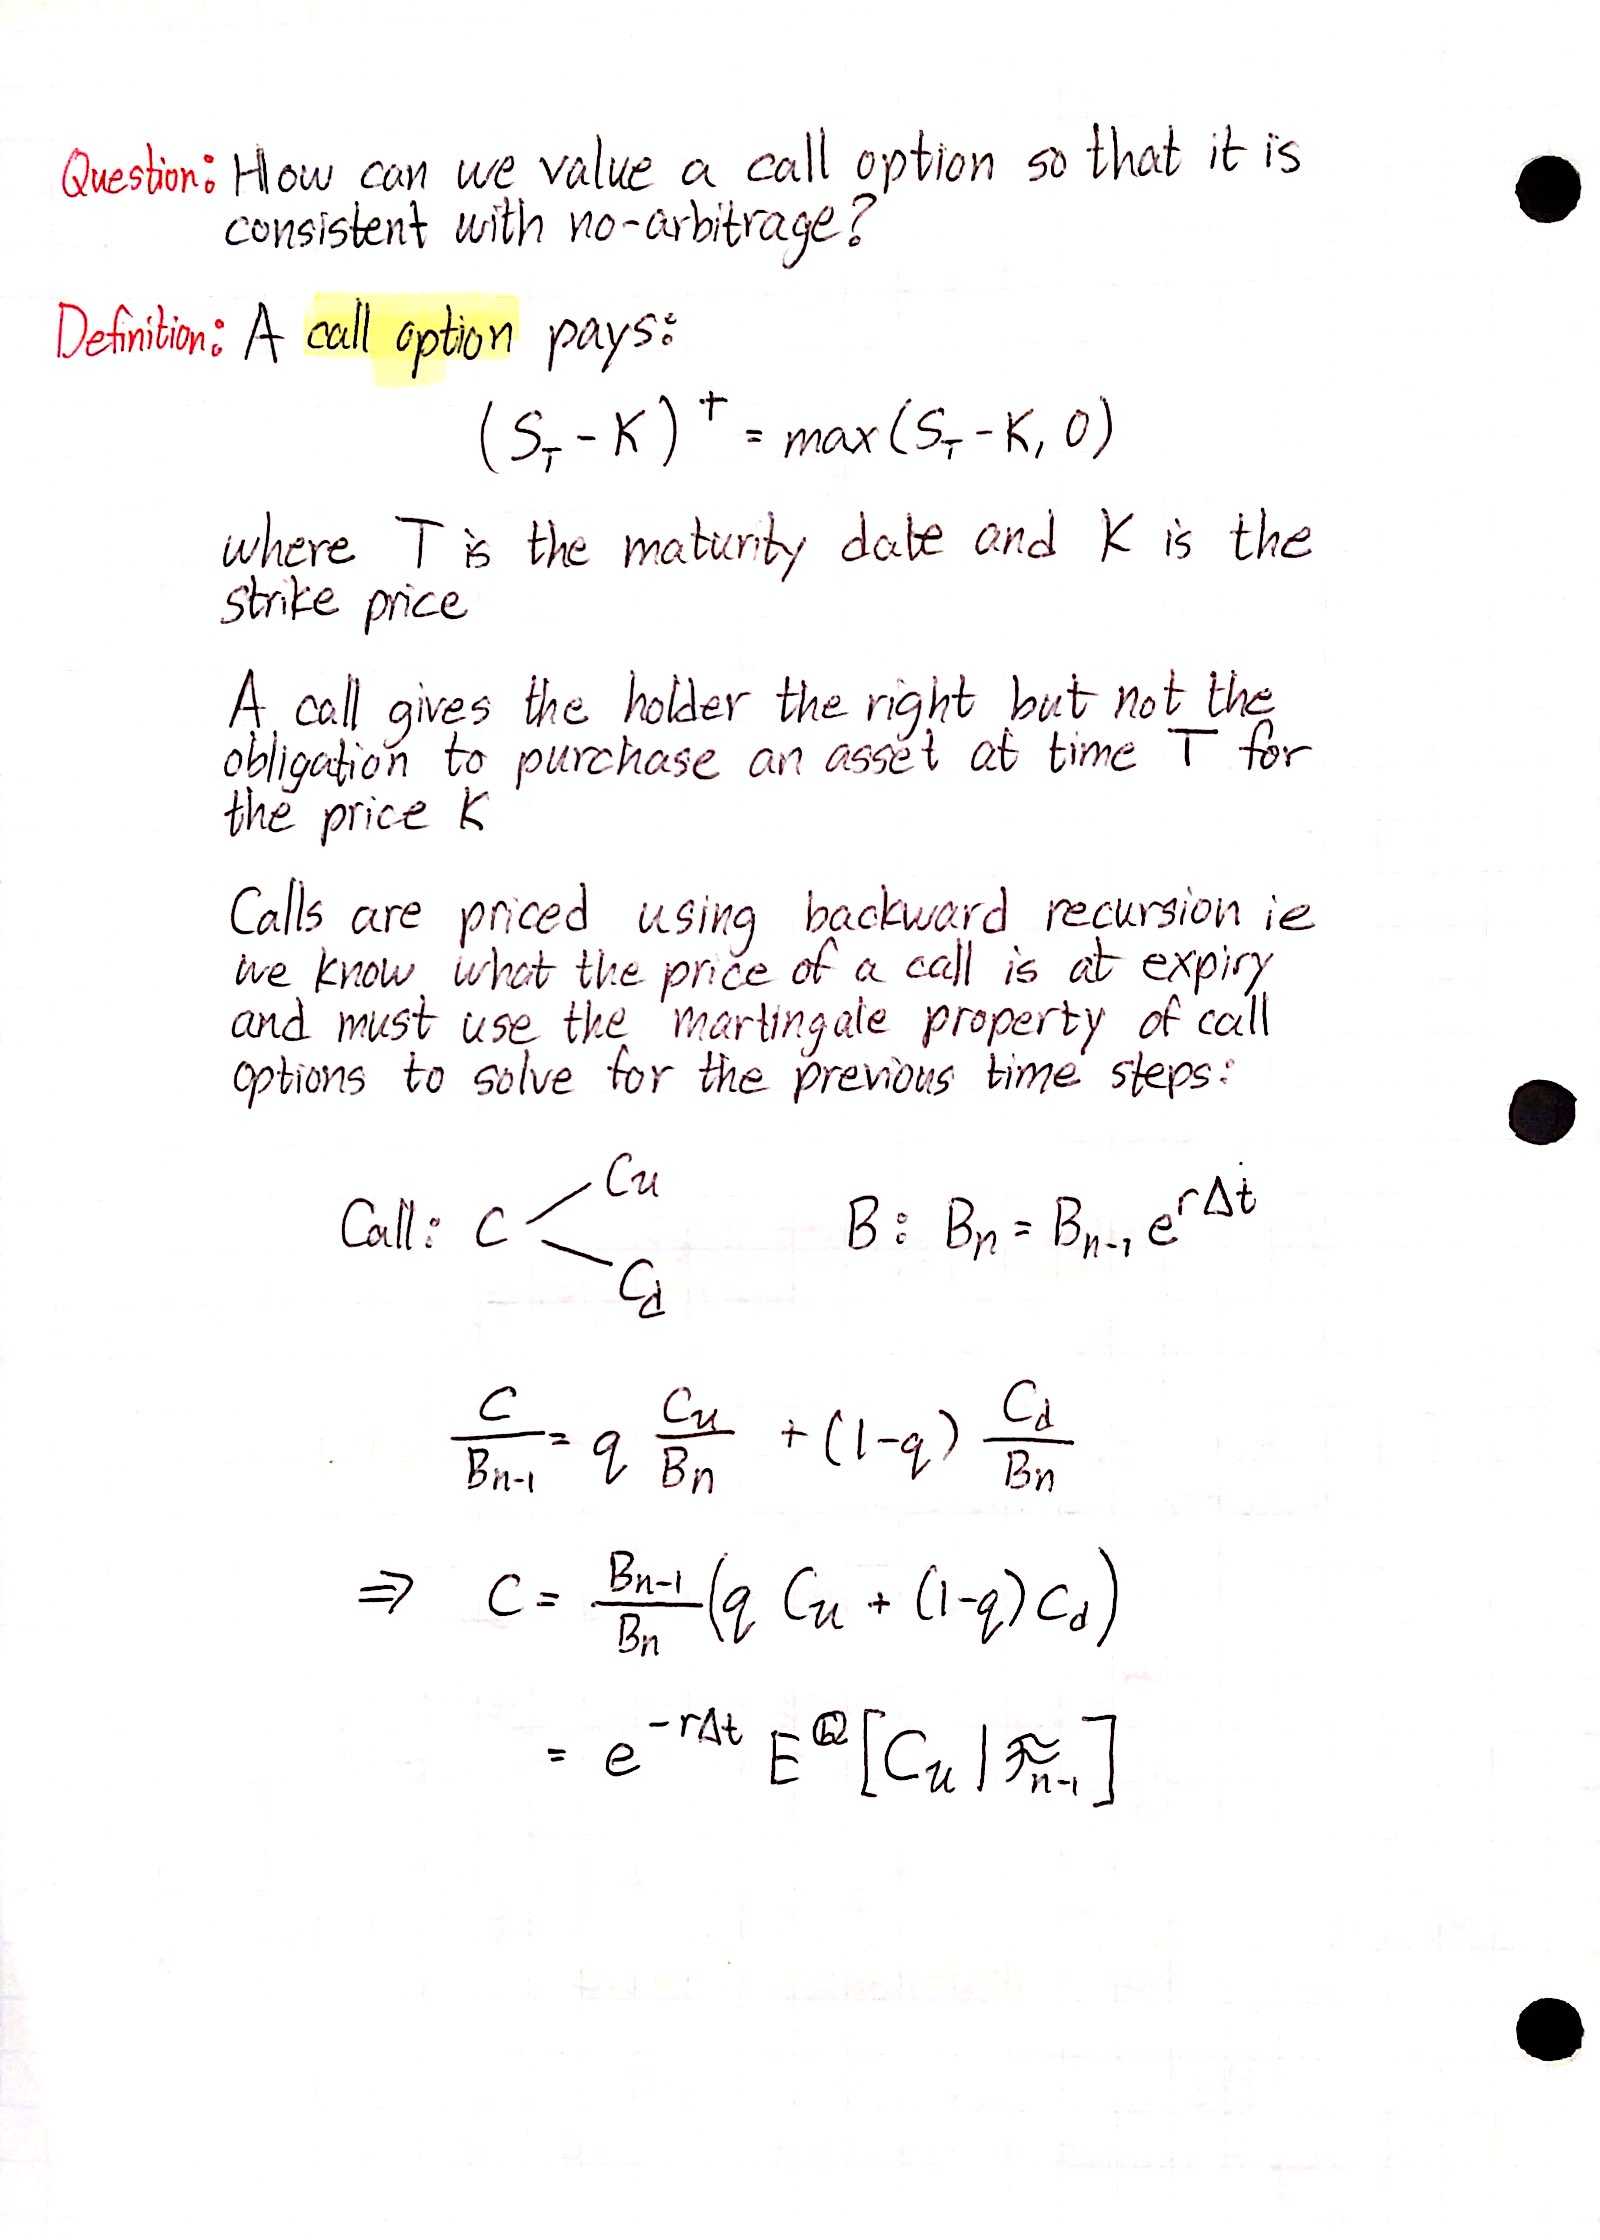 Question: How can we value a call option so that it is
consistent with no-arbitrage?
Definition: A call option pays:
(S_T - K)^+ = max(S_T - K, 0)
where T is the maturity date and K is the
strike price
A call gives the holder the right but not the
obligation to purchase an asset at time T for
the price K
Calls are priced using backward recursion ie
we know what the price of a call is at expiry
and must use the martingale property of call
options to solve for the previous time steps:
Call: C < C_u C_d B: B_n = B_{n-1} e^{rΔt}
C/B_{n-1} = q C_u/B_n + (1-q) C_d/B_n
⇒ C = B_{n-1}/B_n (q C_u + (1-q) C_d)
= e^{-rΔt} E^ℚ [C_u | ℱ_{n-1}]